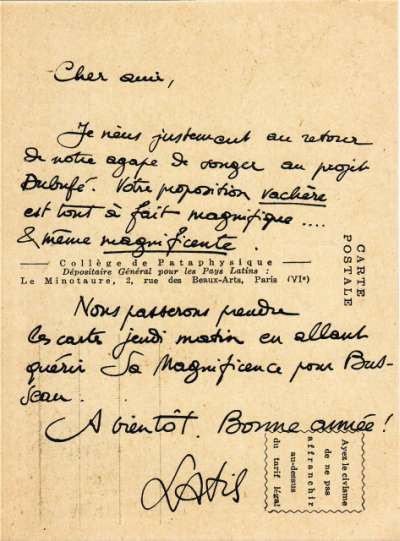 Cher ami,
Je viens justement au retour
de notre agape de songer au projet
Bubufé. Votre proposition vachère
est tout à fait magnifique ....
& même magnificente.
Collège de Pataphysique
Dépositaire Général pour les Pays Latins :
Le Minotaure, 2, rue des Beaux-Arts, Paris (VIe)
CARTE
POSTALE
Nous passerons prendre
les carte jeudi matin en allant
quérir Sa Magnificence pour Bus-
seau.
A bientôt. Bonne année !
Ayez le civisme
de ne pas
affranchir
au-dessus
du tarif légal
Latis